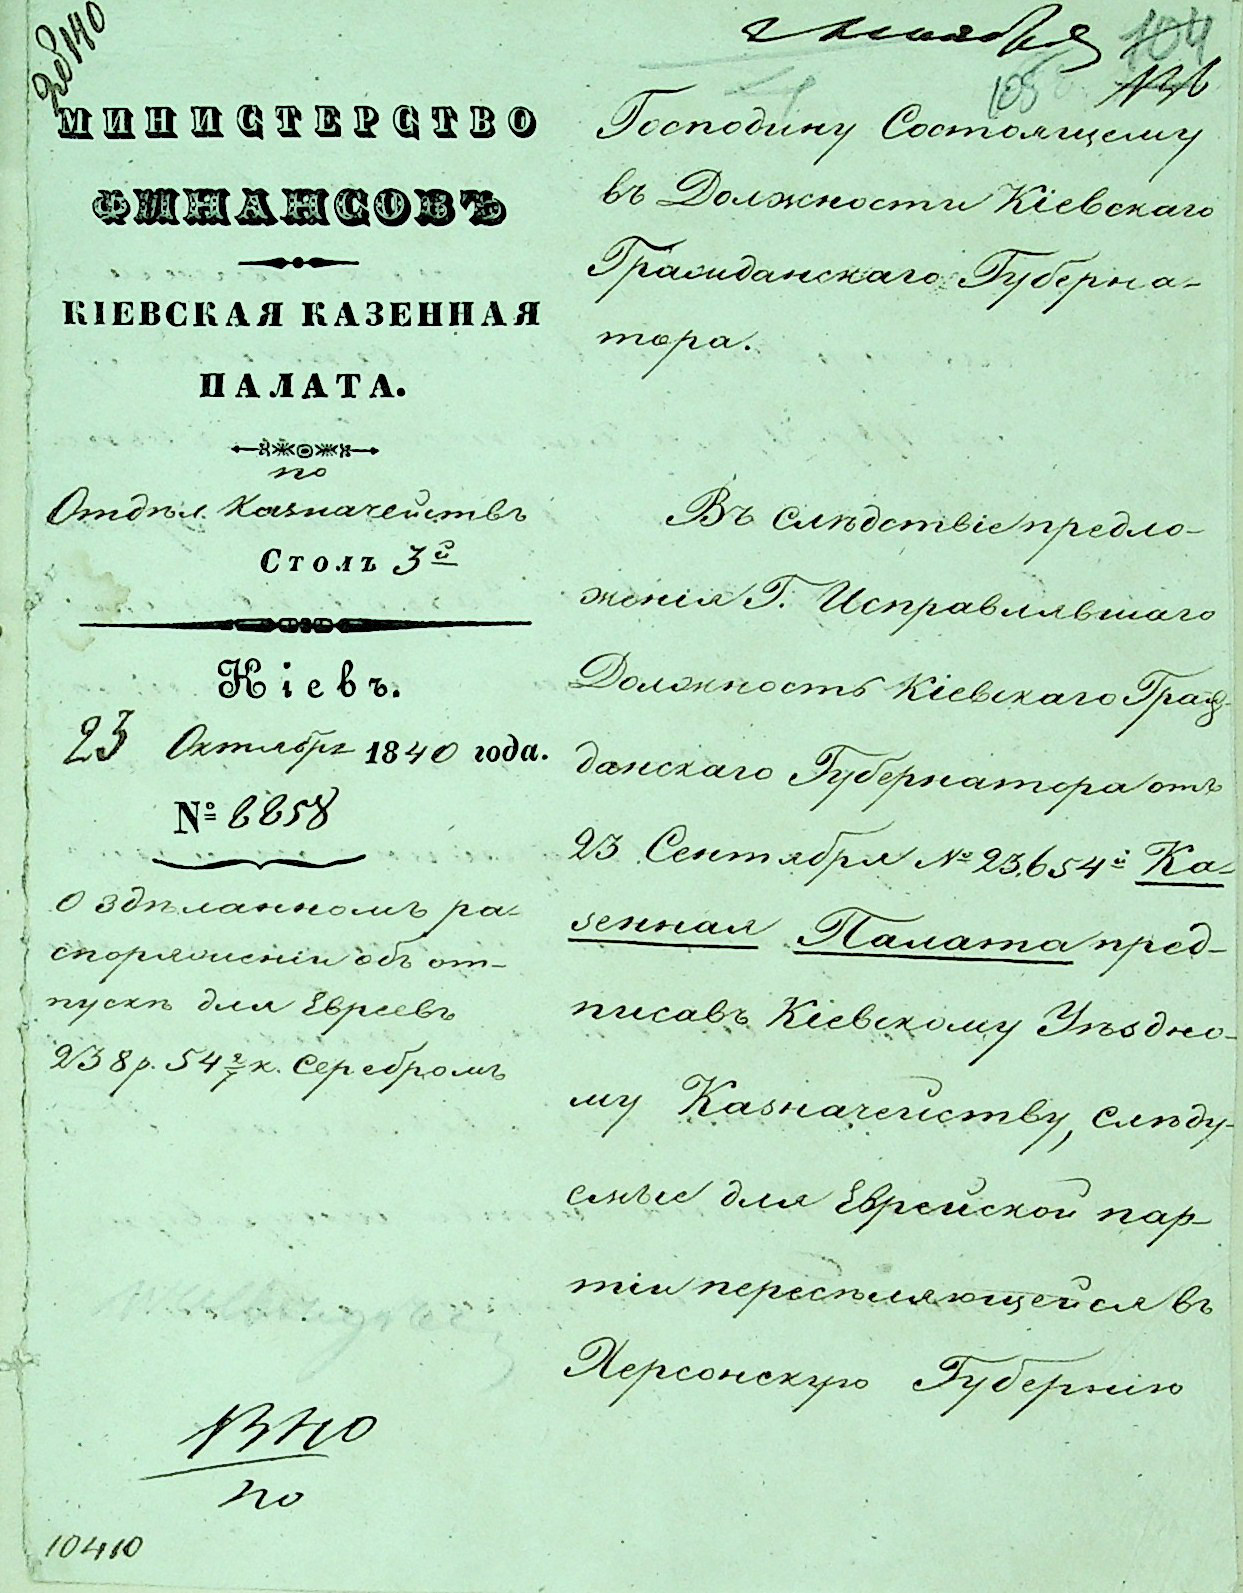 МИНИСТЕРСТВО
ФИНАНСОВЪ
КІЕВСКАЯ КАЗЕННАЯ
ПАЛАТА.
по
Отдѣл. Казначействъ
Столъ 3й
Кіевъ.
23 Октября 1840 года.
№ 6658
О здѣланномъ ра-
споряженіи объ от-
пускѣ для Евреевъ
238 р. 54 2/7 к. серебромъ
10410
104
105
Господину Состоящему
въ Должности Кіевскаго
Гражданскаго Губерна-
тора.
Въ слѣдствіе предло-
женія Г. Исправлявшаго
Должность Кіевскаго Граж-
данскаго Губернатора отъ
23 Сентября № 23.654й Ка-
зенная Палата пред-
писавъ Кіевскому Уѣздно-
му Казначейству, слѣду-
емые для Еврейской пар-
тіи переселяющейся въ
Херсонскую Губернію